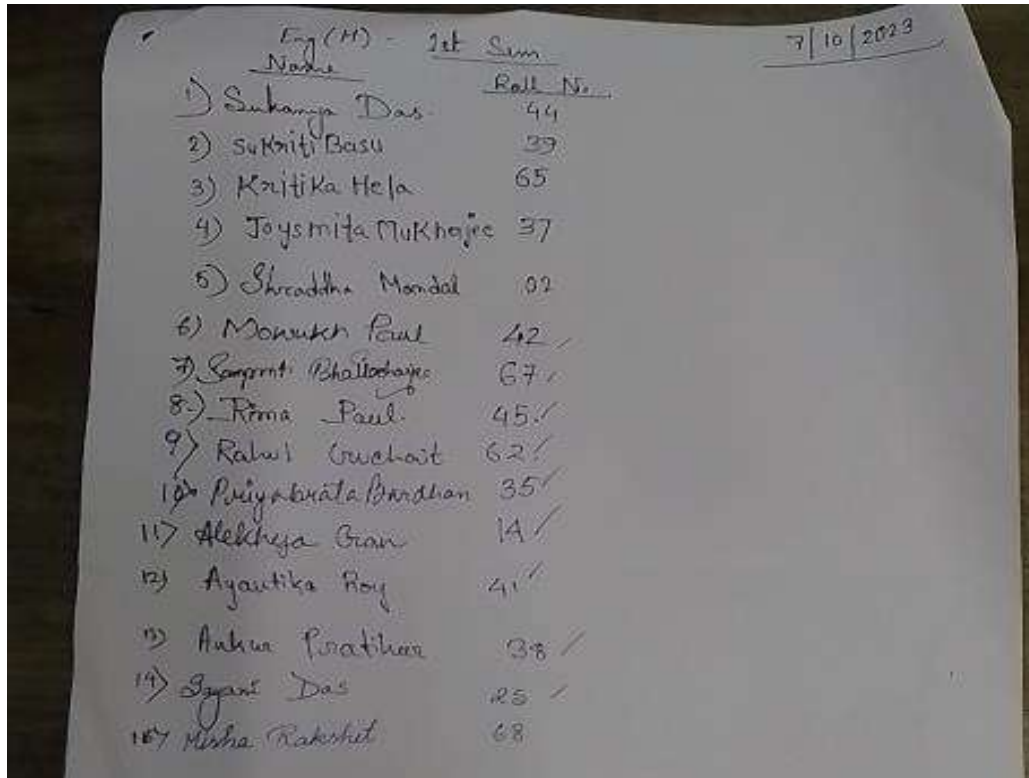 Eng (H) - 1st Sem 7/10/2023
Name Roll No.
1) Sukanya Das 44
2) Sukriti Basu 39
3) Kritika Hela 65
4) Joysmita Mukherjee 37
5) Shreaddha Mondal 02
6) Paul 42
7) Bhattacharjee 67
8.) Rima Paul. 45
9) Rahul Guchait 62
10) Priyabrata Bardhan 35
11) Alekhya 14
12) Ayantika Roy 41
13) Ankur Pratihar 38
14) Das 25
15) Misha Rakshit 68